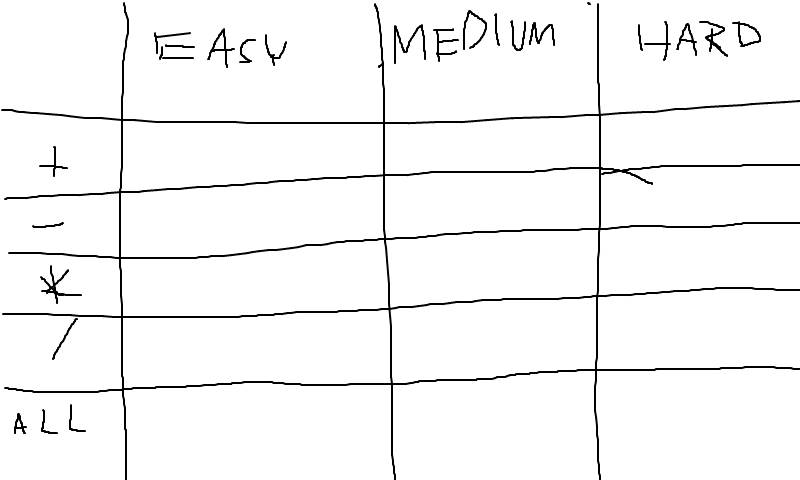 EASY MEDIUM HARD
+
-
*
/
ALL